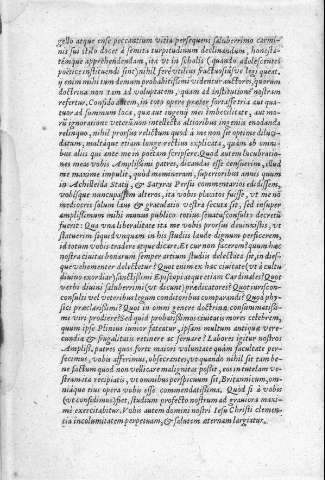 gello atque ense peccantium vitia persequens saluberrimo carmi-
nis sui stilo docet à semita turpitudinum declinandum, honesta-
témque apprehendendam, ita vt in scholis (quando adolescentes
poëticæ instituendi sint) nihil ferè vtilius fructuosiúsve legi queat,
ij enim mihi tum demum probatissimi videntur auctores, quorum
doctrina non tam ad voluptatem, quàm ad institutionem nostram
refertur. Confido autem, in toto opere præter fortasse tria aut qua-
tuor ad summum loca, quæ aut ingenij mei imbecillitate, aut mo-
rũ ignoratione veterũ non intellecta altioribus ingenijs enodanda
relinquo, nihil prorsus relictum quod à me non sit optime diluci-
datum, multáque etiam longe rectius explicata, quàm ab omni-
bus alijs qui ante me in poëtam scripsere. Quod autem lucubratio-
nes meas vobis Amplissimi patres, dicandas esse censuerim, illud
me maxime impulit, quòd memineram, superioribus annis quum
in Achilleida Statij, & Satyras Persij commentarios edidissem,
vobisque nuncupassem alteros, ita vobis placitos fuisse, vt me nõ
mediocris solum laus & gratulatio vestra secuta sit, sed insuper
amplissimum mihi munus publico totius senatus consulto decretũ
fuerit: Qua vna liberalitate ita me vobis prorsus deuinxistis, vt
statuerim siquid vnquam in his studijs laude dignum perficerem,
id totum vobis tradere atque dicare. Et cur non facerem? quum hæc
nostra ciuitas bonarum semper artium studijs delectata sit, in dies-
que vehementer delectetur? Quot enim ex hac ciuitate (vt à cultu
diuino exordiar) sanctissimi Episcopi atque etiam Cardinales? Quot
verbi diuini saluberrimi (vt dicunt) prædicatores? Quot iurisconsulti vel veteribus legum conditoribus comparandi? Quot phy-
sici præclarissimi? Quot in omni genere doctrinæ consummatissi-
mi viri prodiere? Sed quid probatissimos ciuitatis mores celebrem,
quum ipse Plinius iunior fateatur, ipsam multum antiquæ vere-
cundiæ & frugalitatis retinere ac seruare? Labores igitur nostros
Amplissi. patres quos forte maiores voluntate quàm facultate per-
fecimus, vobis afferimus, obsecrantes, vt quando nihil sit tam be-
ne factum quod non vellicare malignitas possit, eos in tutelam ve-
stram ita recipiatis, vt omnibus perspicuum sit, Britannicum, om-
niáque eius opera vobis esse commendatissima. Quod si à vobis
(vt confidimus) fiet, studium profecto nostrum ad grauiora maxi-
mi exercitabitur. Vobis autem domini nostri Iesu Christi clemen-
tia incolumitatem perpetuam, & salutem æternam largiatur.